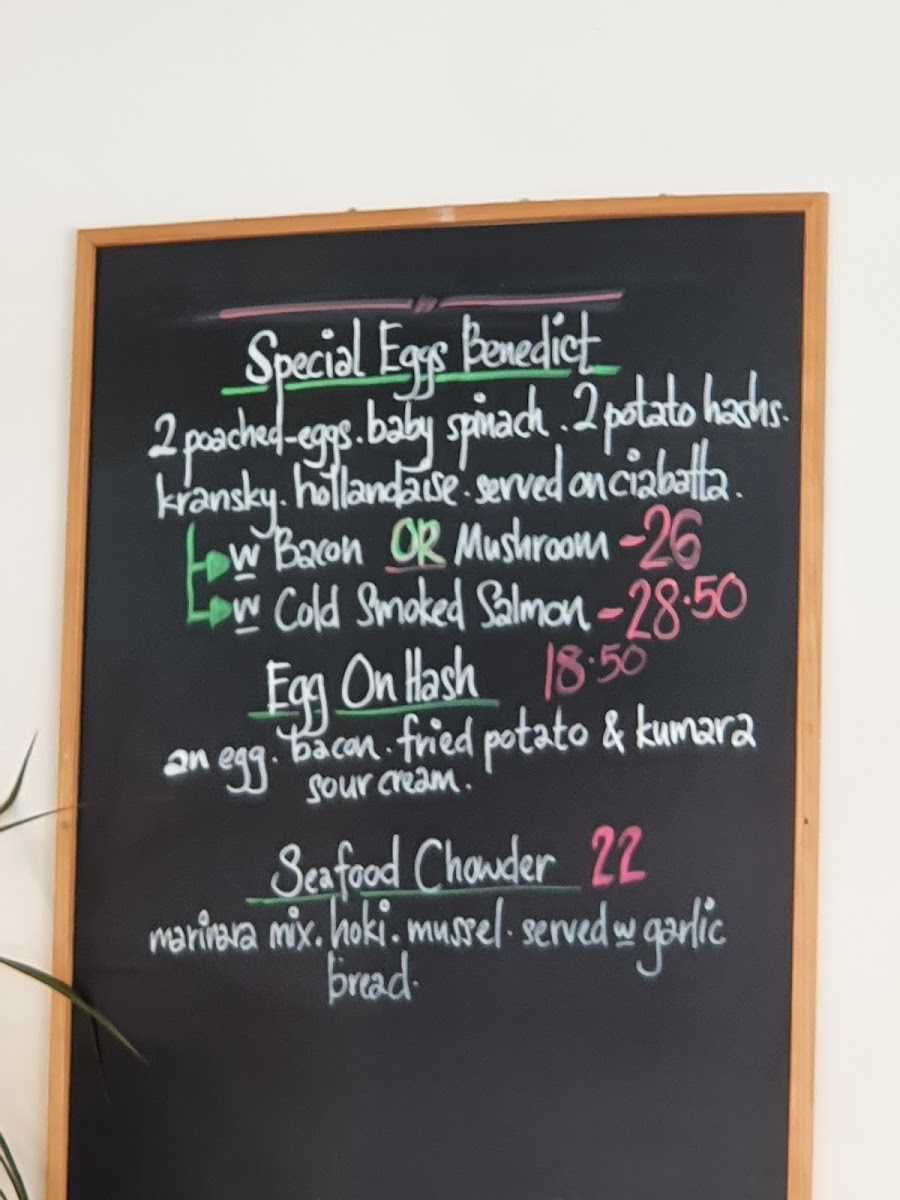 Special Eggs Benedict
2 poached-eggs. baby spinach. 2 potato hashs.
kransky. hollandaise. served on ciabatta.
w Bacon OR Mushroom - 26
w Cold Smoked Salmon - 28.50
Egg On Hash 18.50
an egg. bacon. fried potato & kumara
sour cream.
Seafood Chowder 22
marinara mix. hoki. mussel. served w garlic
bread.